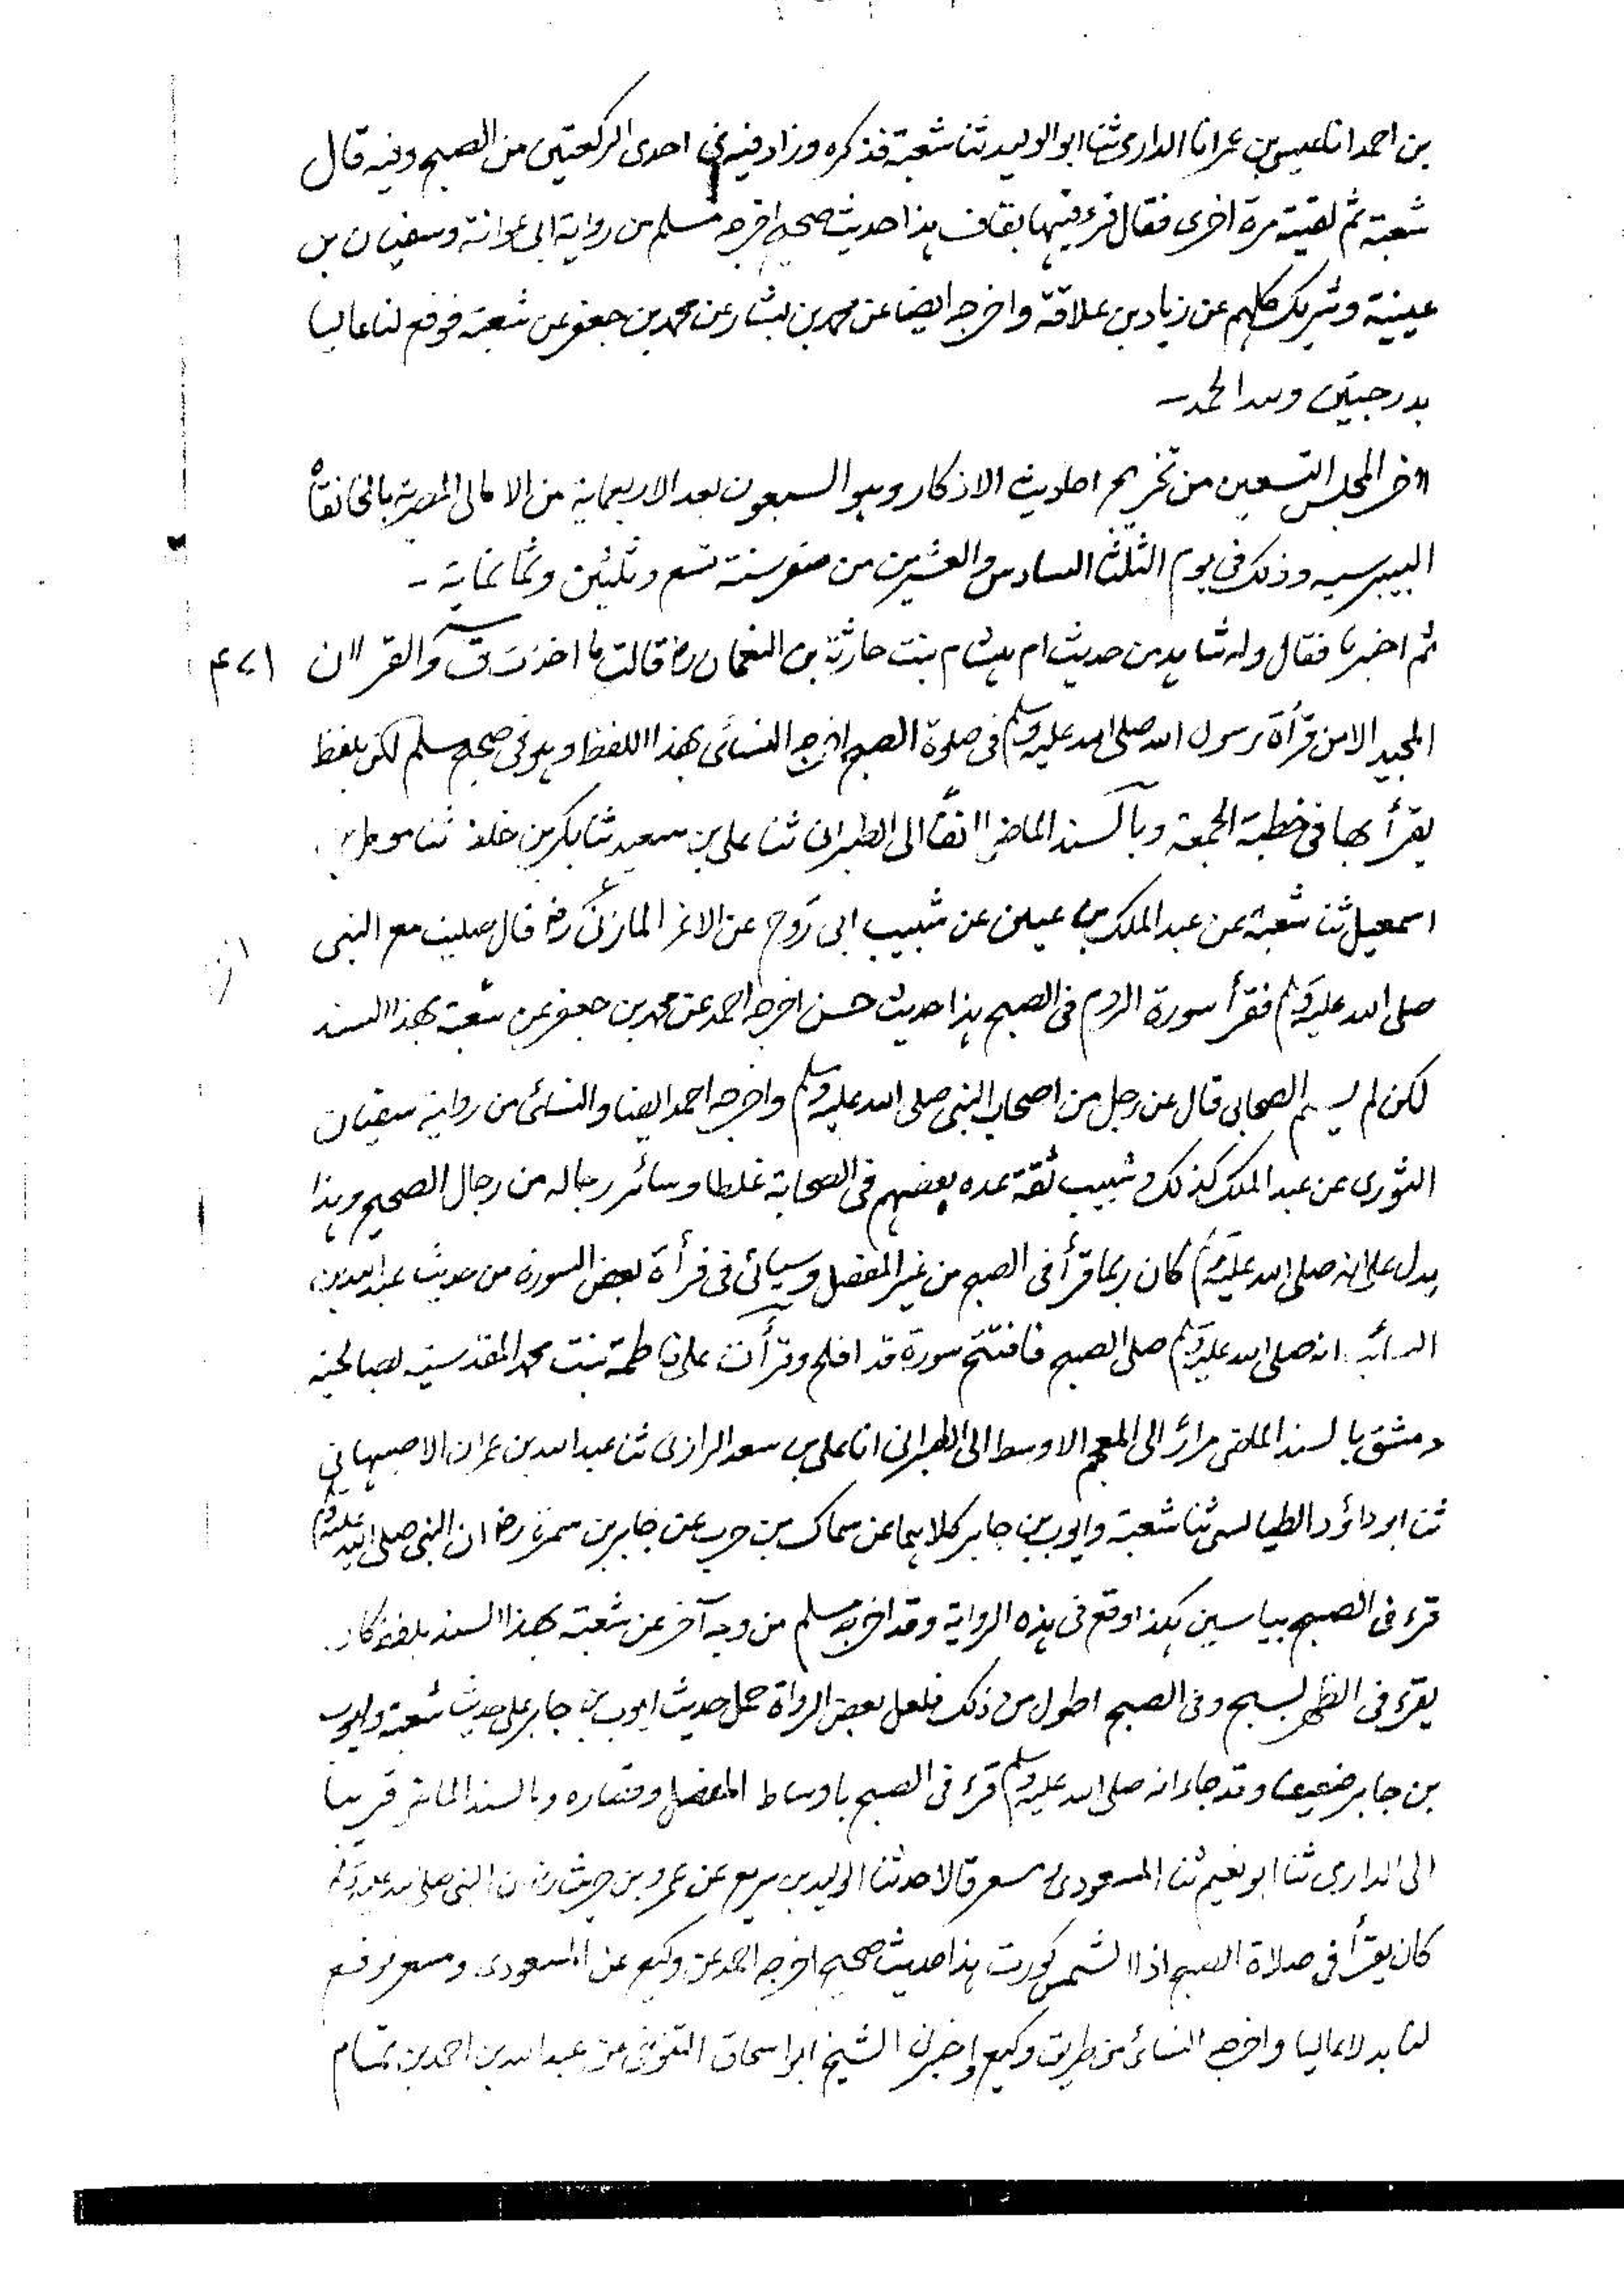 بن احمد انا عيسى بن عمر انا الدارمى ثنا ابو الوليد ثنا شعبة فذكره وزاد فيه فى احدى الركعتين من الصبح وفيه قال
شعبة ثم لقيته مرة اخرى فقال قرء فيها بقاف هذا حديث صحيح اخرجه مسلم من رواية ابى عوانة وسفيان بن
عيينة وشريك كلهم عن زياد بن علاقة واخرجه ايضا عن محمد بن بشار عن محمد بن جعفر عن شعبة فوقع لنا عاليا
بدرجتين ولله الحمد -
اخر المجلس التسعين من تخريج احاديث الاذكار وهو السبعون بعد الاربعماية من الامالى المصرية بالخانقاه
البيبرسيه وذلك فى يوم الثلثا السادس والعشرين من صفر سنة تسع وثلثين وثمانماية -
ثم اخبرنا فقال وله شاهد من حديث ام هشام بنت حارثة بن النعمان رض قالت ما اخذت ق والقران ٤٧١
المجيد الا من قرأة رسول الله صلى الله عليه وسلم فى صلوة الصبح اخرجه النسائى بهذا اللفظ وهو فى صحيح مسلم لكن بلفظ
يقرأ بها فى خطبة الجمعة وبالسند الماضى انفا الى الطبرانى ثنا على بن سعيد ثنا بكر بن خلف ثنا مومل بن
اسمعيل ثنا شعبة عن عبد الملك بن عمير عن شبيب ابى روح عن الاغر المازنى رض قال صليت مع النبى
صلى الله عليه وسلم فقرأ سورة الروم فى الصبح هذا حديث حسن اخرجه احمد عن محمد بن جعفر عن شعبة بهذا السند
لكن لم يسم الصحابى قال عن رجل من اصحاب النبى صلى الله عليه وسلم واخرجه احمد ايضا والنسائى من رواية سفيان
الثورى عن عبد الملك كذلك وشبيب ثقة عده بعضهم فى الصحابة غلطا وسائر رجاله من رجال الصحيح وهذا
يدل على انه صلى الله عليه وسلم كان ربما قرأ فى الصبح من غير المفصل وسيأتى فى قرأة بعض السورة من حديث عبد الله بن
السائب انه صلى الله عليه وسلم صلى الصبح فافتتح سورة قد افلح وقرأت على فاطمة بنت محمد المقدسية بصالحية
دمشق بالسند الماضى مرارا الى المعجم الاوسط الى الطبرانى انا على بن سعد الرازى ثنا عبد الله بن عمران الاصبهانى
ثنا ابو داؤد الطيالسى ثنا شعبة وايوب بن جابر كلاهما عن سماك بن حرب عن جابر بن سمرة رض ان النبى صلى الله عليه وسلم
قرء فى الصبح بياسين هكذا وقع فى هذه الرواية وقد اخرجه مسلم من وجه آخر عن شعبة بهذا السند بلفظ كان
يقرء فى الظهر بسبح وفى الصبح اطول من ذلك فلعل بعض الرواة حمل حديث ايوب بن جابر على حديث شعبة وايوب
بن جابر ضعيف وقد جاء انه صلى الله عليه وسلم قرء فى الصبح باوساط المفصل وقصاره وبالسند الماضى قريبا
الى الدارمى ثنا ابو نعيم ثنا المسعودى ومسعر قالا حدثنا الوليد بن سريع عن عمرو بن حريث رض ان النبى صلى الله عليه وسلم
كان يقرأ فى صلاة الصبح اذا الشمس كورت هذا حديث صحيح اخرجه احمد عن وكيع عن المسعودى ومسعر فوقع
لنا بدلا عاليا واخرجه النسائى من طريق وكيع واخبرنى الشيخ ابو اسحاق التنوخى عن عبد الله بن احمد بن تمام